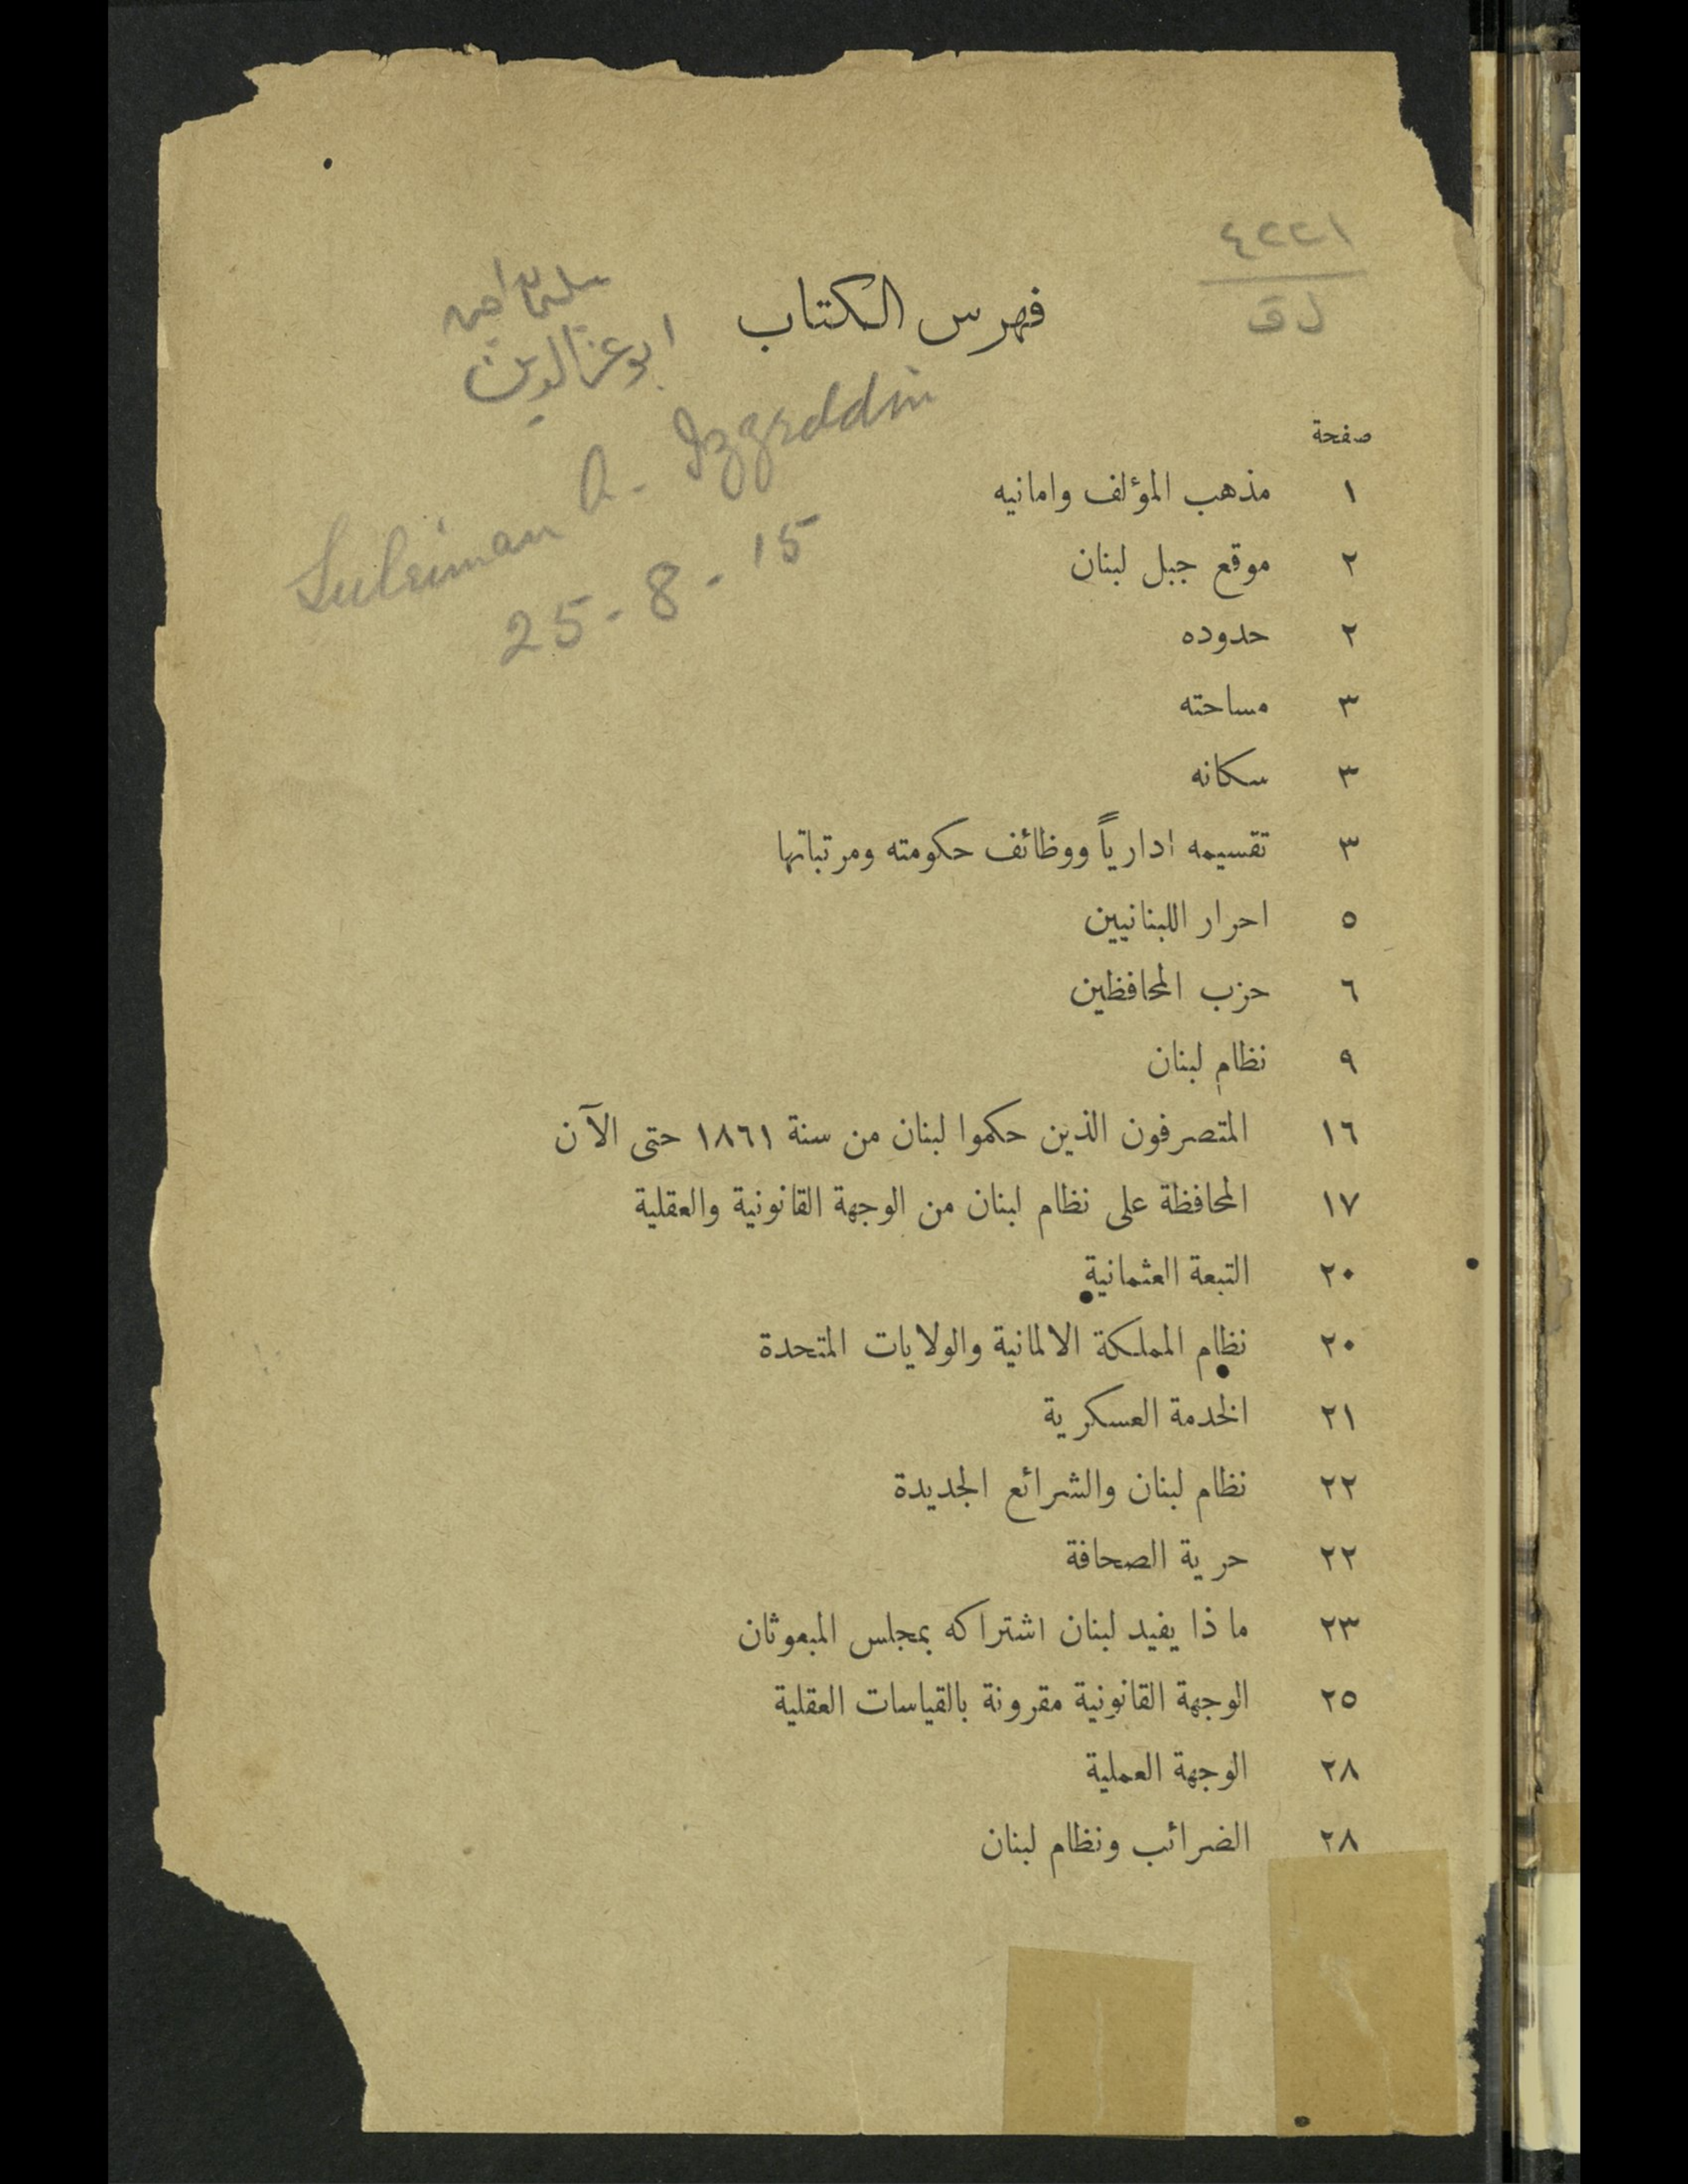 ٤٢٢١
ل ق
فهرس الكتاب
سليمان امين
ابو عز الدين
Suleiman A. Izzeddin
25-8-15
صفحة
١ مذهب المؤلف وامانيه
٢ موقع جبل لبنان
٢ حدوده
٣ مساحته
٣ سكانه
٣ تقسيمه ادارياً ووظائف حكومته ومرتباتها
٥ احرار اللبنانيين
٦ حزب المحافظين
٩ نظام لبنان
١٦ المتصرفون الذين حكموا لبنان من سنة ١٨٦١ حتى الآن
١٧ المحافظة على نظام لبنان من الوجهة القانونية والعقلية
٢٠ التبعة العثمانية
٢٠ نظام المملكة الالمانية والولايات المتحدة
٢١ الخدمة العسكرية
٢٢ نظام لبنان والشرائع الجديدة
٢٢ حرية الصحافة
٢٣ ما ذا يفيد لبنان اشتراكه بمجلس المبعوثان
٢٥ الوجهة القانونية مقرونة بالقياسات العقلية
٢٨ الوجهة العملية
٢٨ الضرائب ونظام لبنان